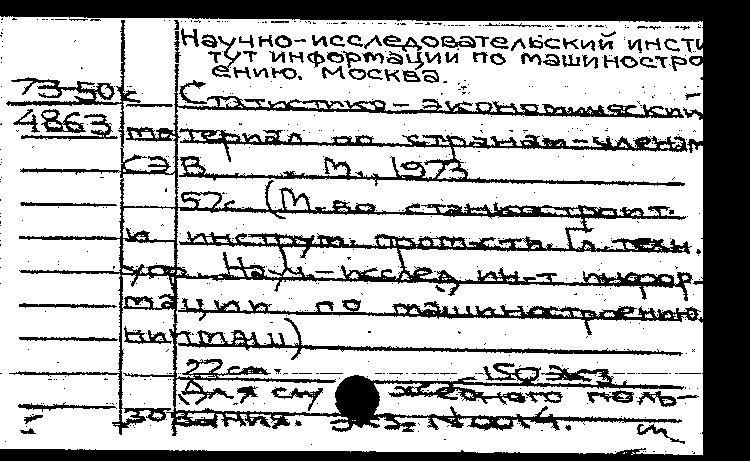 Научно-исследовательский инсти
тут информации по машиностро
ению. Москва.
73-50к Статистико-экономический
4863 материал по странам-членам
СЭВ. М., 1973
57с. (М-во станкостроит.
и инструм. пром-сти. Гл. техн.
упр. Науч.-исслед. ин-т инфор-
мации по машиностроению.
НИИМАШ)
22 см. 150 экз.
Для служебного поль-
зования. Экз. №0014.